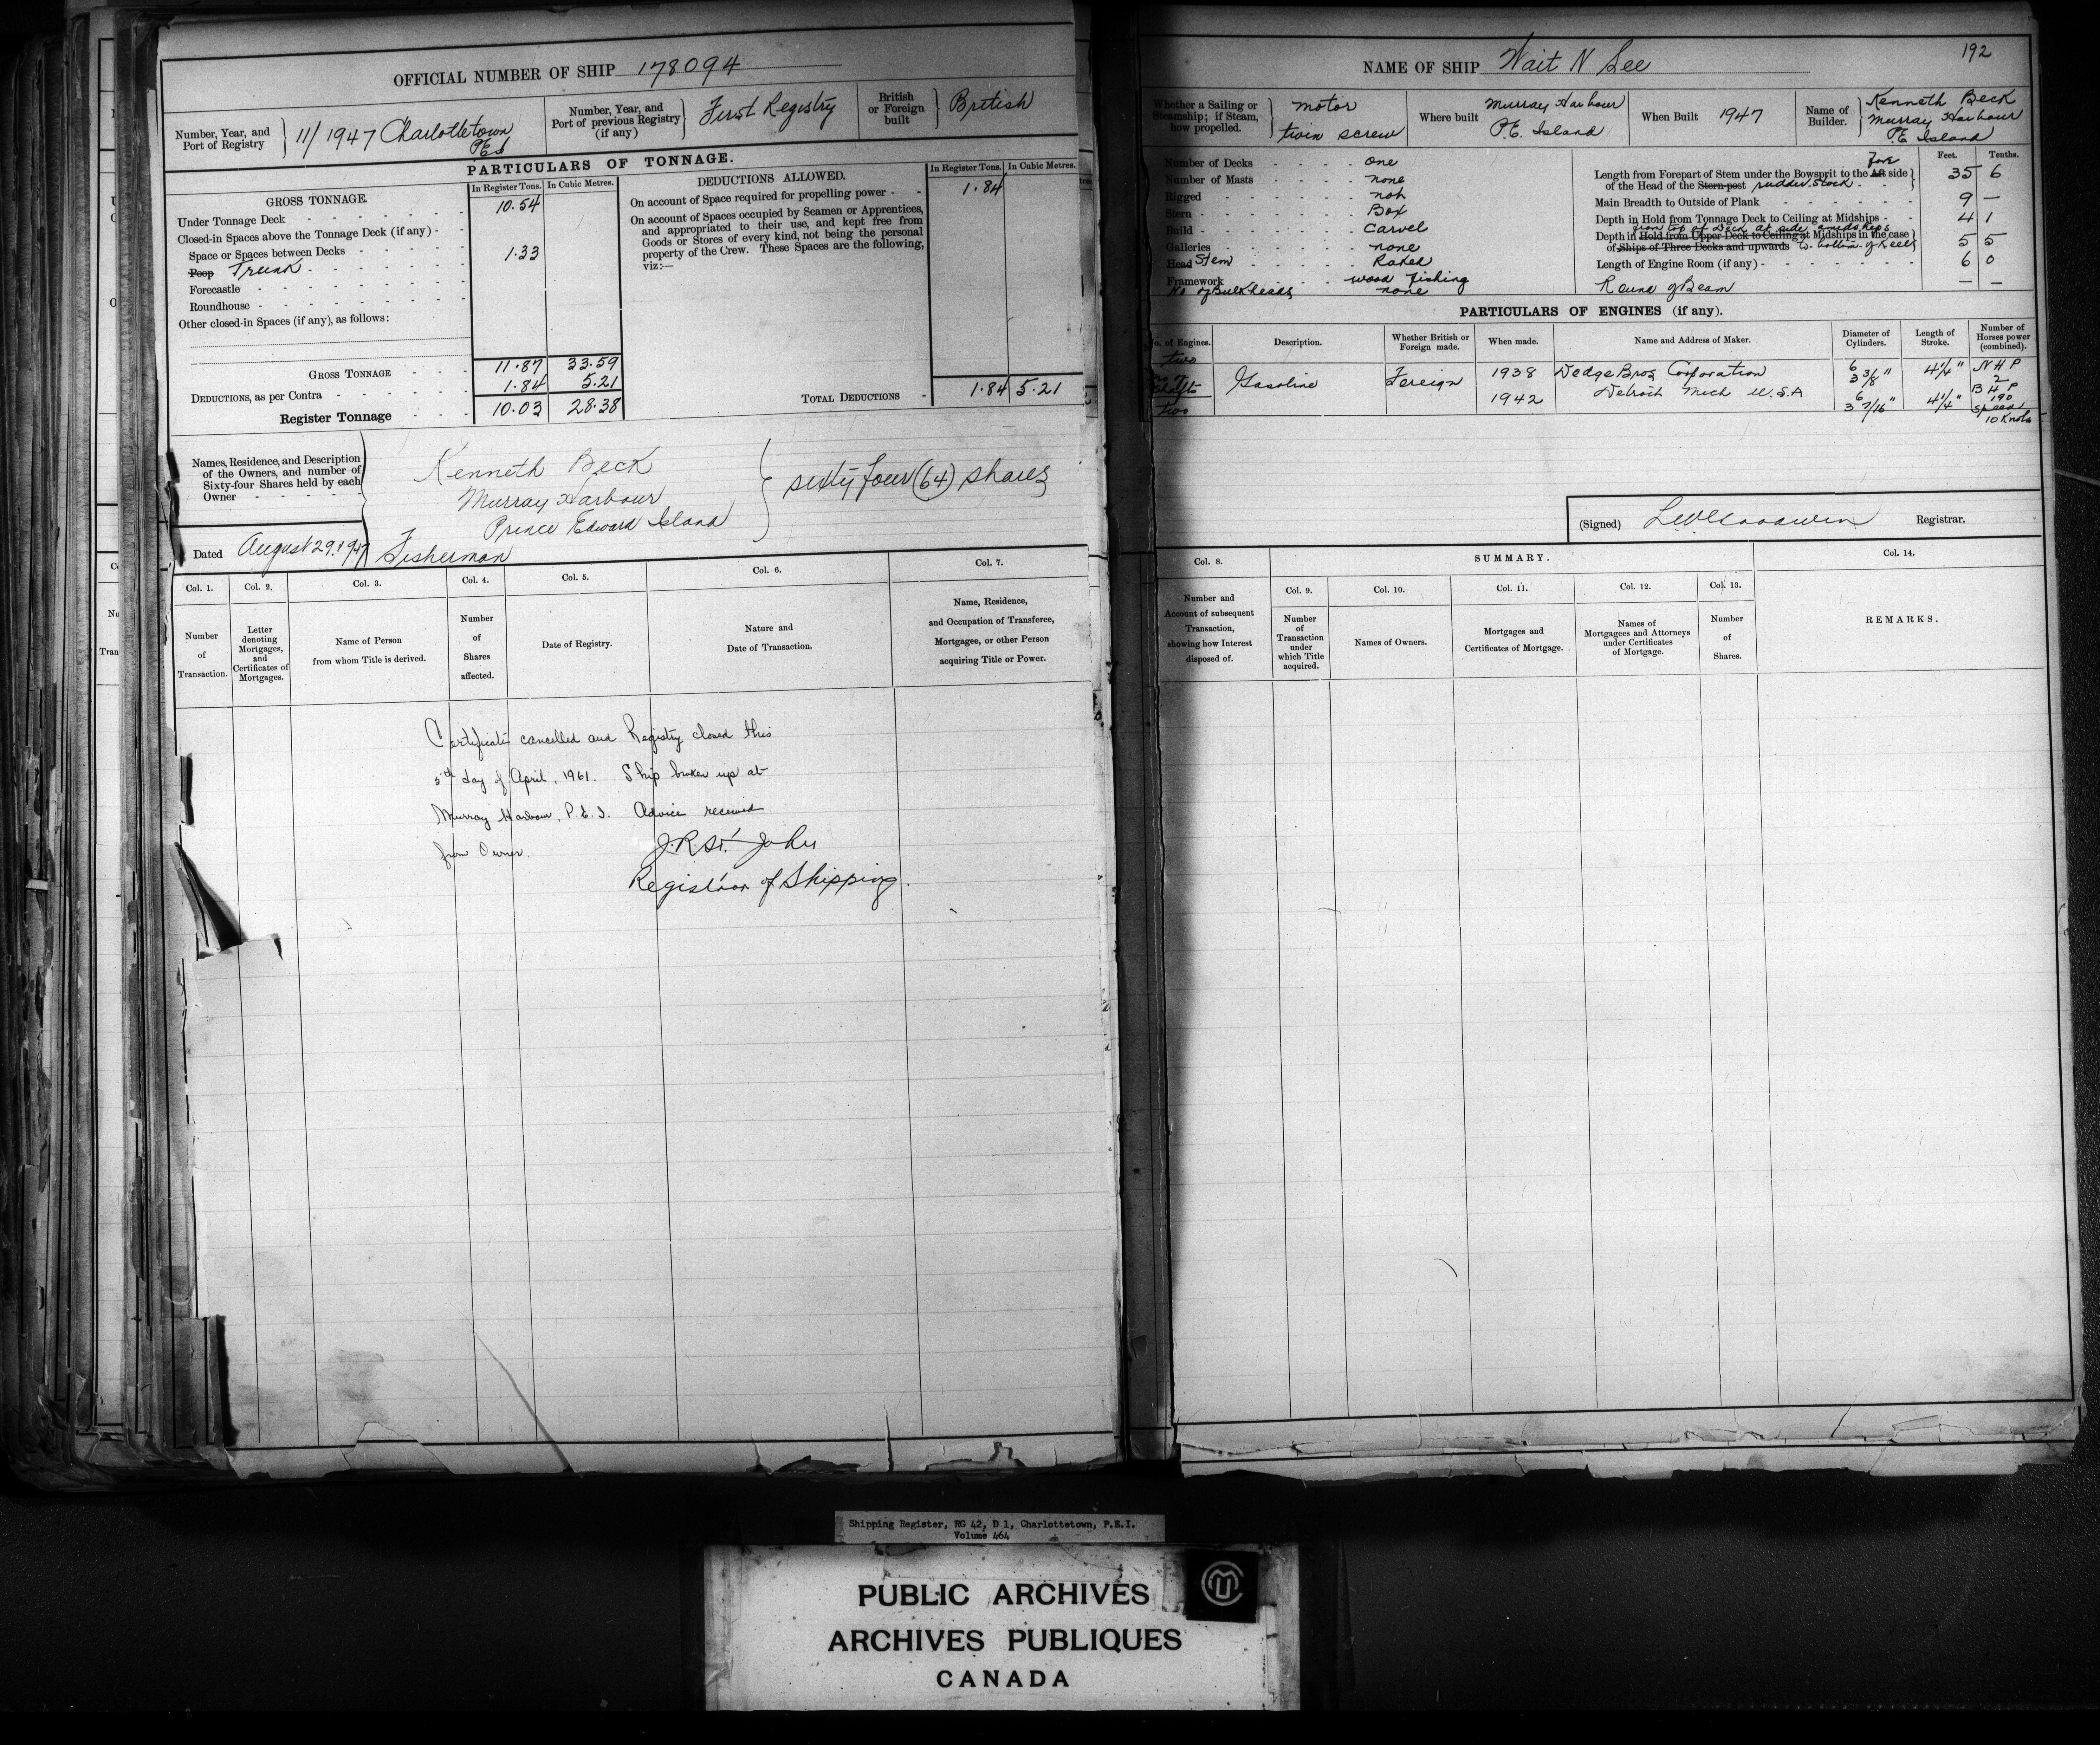 OFFICIAL NUMBER OF SHIP 178094
Number, Year, and Port of Registry } 11/1947 Charlottetown PEI
Number, Year, and Port of previous Registry (if any) } First Registry
British or Foreign built } British
PARTICULARS OF TONNAGE.
GROSS TONNAGE. In Register Tons. In Cubic Metres.
Under Tonnage Deck 10.54
Closed-in Spaces above the Tonnage Deck (if any)
Space or Spaces between Decks
Poop Trunk 1.33
Forecastle
Roundhouse
Other closed-in Spaces (if any), as follows:
GROSS TONNAGE 11.87 33.59
DEDUCTIONS, as per Contra 1.84 5.21
Register Tonnage 10.03 28.38
DEDUCTIONS ALLOWED. In Register Tons. In Cubic Metres.
On account of Space required for propelling power 1.84
On account of Spaces occupied by Seamen or Apprentices,
and appropriated to their use, and kept free from
Goods or Stores of every kind, not being the personal
property of the Crew. These Spaces are the following,
viz:—
TOTAL DEDUCTIONS 1.84 5.21
Names, Residence, and Description
of the Owners, and number of
Sixty-four Shares held by each
Owner
Kenneth Beck
Murray Harbour
Prince Edward Island
Fisherman
sixty four (64) shares
Dated August 29, 1947
Col. 1. Col. 2. Col. 3. Col. 4. Col. 5. Col. 6. Col. 7.
Number of Transaction.
Letter denoting Mortgages, and Certificates of Mortgages.
Name of Person from whom Title is derived.
Number of Shares affected.
Date of Registry.
Nature and Date of Transaction.
Name, Residence, and Occupation of Transferee, Mortgagee, or other Person acquiring Title or Power.
Certificate cancelled and Registry closed this
5th day of April, 1961. Ship broken up at
Murray Harbour, P.E.I. Advice received
from Owner.
J.R. St. John
Registrar of Shipping.
192
NAME OF SHIP Wait N See
Whether a Sailing or Steamship; if Steam, how propelled. } motor twin screw
Where built Murray Harbour P.E. Island
When Built 1947
Name of Builder. } Kenneth Beck Murray Harbour P.E Island
Number of Decks one
Number of Masts none
Rigged not
Stern Box
Build Carvel
Galleries none
Head Stem Raked
Framework wood fishing
No of Bulkheads none
Feet. Tenths.
Length from Forepart of Stem under the Bowsprit to the Aft Fore side
of the Head of the Stern-post rudder stock 35 6
Main Breadth to Outside of Plank 9 —
Depth in Hold from Tonnage Deck to Ceiling at Midships 4 1
from top of Deck at side amidships
Depth in Hold from Upper Deck to Ceiling at Midships in the case
of Ships of Three Decks and upwards to bottom of keel 5 5
Length of Engine Room (if any) 6 0
Round of Beam — —
PARTICULARS OF ENGINES (if any).
No. of Engines. Description. Whether British or Foreign made. When made. Name and Address of Maker. Diameter of Cylinders. Length of Stroke. Number of Horses power (combined).
two
No of Shafts
two
Gasoline Foreign
1938 Dodge Bros Corporation 6 3 3/8" 4 1/4" N H P 2
1942 Detroit Mich U.S.A 6 3 7/16" 4 1/4" B H P 190
Speed
10 Knots
(Signed) Registrar.
Col. 8. SUMMARY. Col. 14.
Col. 9. Col. 10. Col. 11. Col. 12. Col. 13.
Number and Account of subsequent Transaction, showing how Interest disposed of.
Number of Transaction under which Title acquired.
Names of Owners.
Mortgages and Certificates of Mortgage.
Names of Mortgagees and Attorneys under Certificates of Mortgage.
Number of Shares.
REMARKS.
Shipping Register, RG 42, D 1, Charlottetown, P.E.I.
Volume 464
PUBLIC ARCHIVES
ARCHIVES PUBLIQUES
CANADA